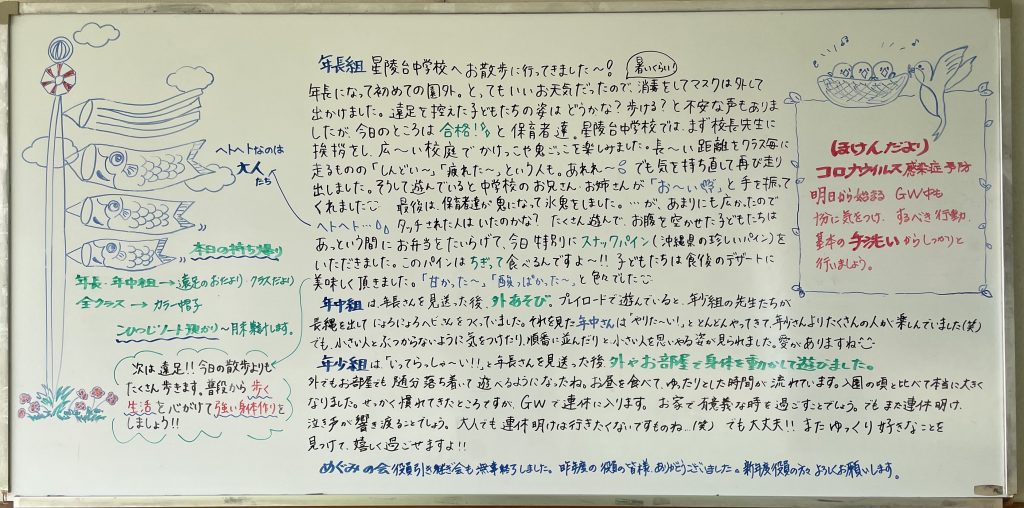 年長組 星陵台中学校へお散歩に行ってきました〜!
暑いくらい
年長になって初めての園外。とってもいいお天気だったので、消毒をしてマスクは外して
出かけました。遠足を控えた子どもたちの姿はどうかな?歩ける?と不安な声もありま
したが、今日のところは合格!!と保育者達。星陵台中学校では、まず校長先生に
挨拶をし、広〜い校庭でかけっこや鬼ごっこを楽しみました。長〜い距離をクラス毎に
走るものの「しんどい〜」「疲れた〜」という人も。あれれ〜でも気を持ち直して再び走り
出しました。そうして遊んでいると中学校のお兄さん・お姉さんが「お〜い」と手を振って
くれました 最後は、保育者達が鬼になって氷鬼をしました。…が、あまりにも広かったので
ヘトヘト… タッチされた人はいたのかな? たくさん遊んで、お腹を空かせた子どもたちは
あっという間にお弁当をたいらげて、今日は特別にスナックパイン(沖縄県の珍しいパイン)を
いただきました。このパインはちぎって食べるんですよ〜!!子どもたちは食後のデザートに
美味しく頂きました。「甘かった〜」「酸っぱかった〜」と色々でした
年中組は、年長さんを見送った後、外あそび。プレイロードで遊んでいると、年少組の先生たちが
長縄を出してにょろにょろヘビさんをつくっていました。それを見た年中さんは「やりた〜い!」とどんどんやってきて、年少さんよりたくさんの人が楽しんでいました(笑)
でも、小さい人とぶつからないように気をつけたり、順番に並んだりと小さい人を思いやる姿が見られました。愛がありますね
年少組は「いってらっしゃ〜い!!」と年長さんを見送った後、外やお部屋で身体を動かして遊びました。
外でもお部屋でも随分落ち着いて遊べるようになったね。お昼を食べて、ゆったりとした時間が流れています。入園の頃と比べて本当に大きく
なりました。せっかく慣れてきたところですが、GWで連休に入ります。お家で有意義な時を過ごすことでしょう。でもまた連休明け、
泣き声が響き渡ることでしょう。大人でも連休明けは行きたくないですものね…(笑) でも大丈夫!! またゆっくり好きなことを
見つけて、嬉しく過ごせますよ!!
めぐみの会 役員引き継ぎ会も無事終了しました。昨年度の役員の皆様、ありがとうございました。新年度役員の方々よろしくお願いします。
ヘトヘトなのは
大人
たち
本日の持ち帰り
年長・年中組→遠足のおたより・クラスだより
全クラス→カラー帽子
こひつじノート預かり〜月末集計します。
次は遠足!!今日の散歩よりも
たくさん歩きます。普段から歩く
生活を心がけて強い身体作りを
しましょう!!
ほけんだより
コロナウイルス感染症予防
明日から始まるGW中も
十分に気をつけ、するべき行動、
基本の手洗いからしっかりと
行いましょう。